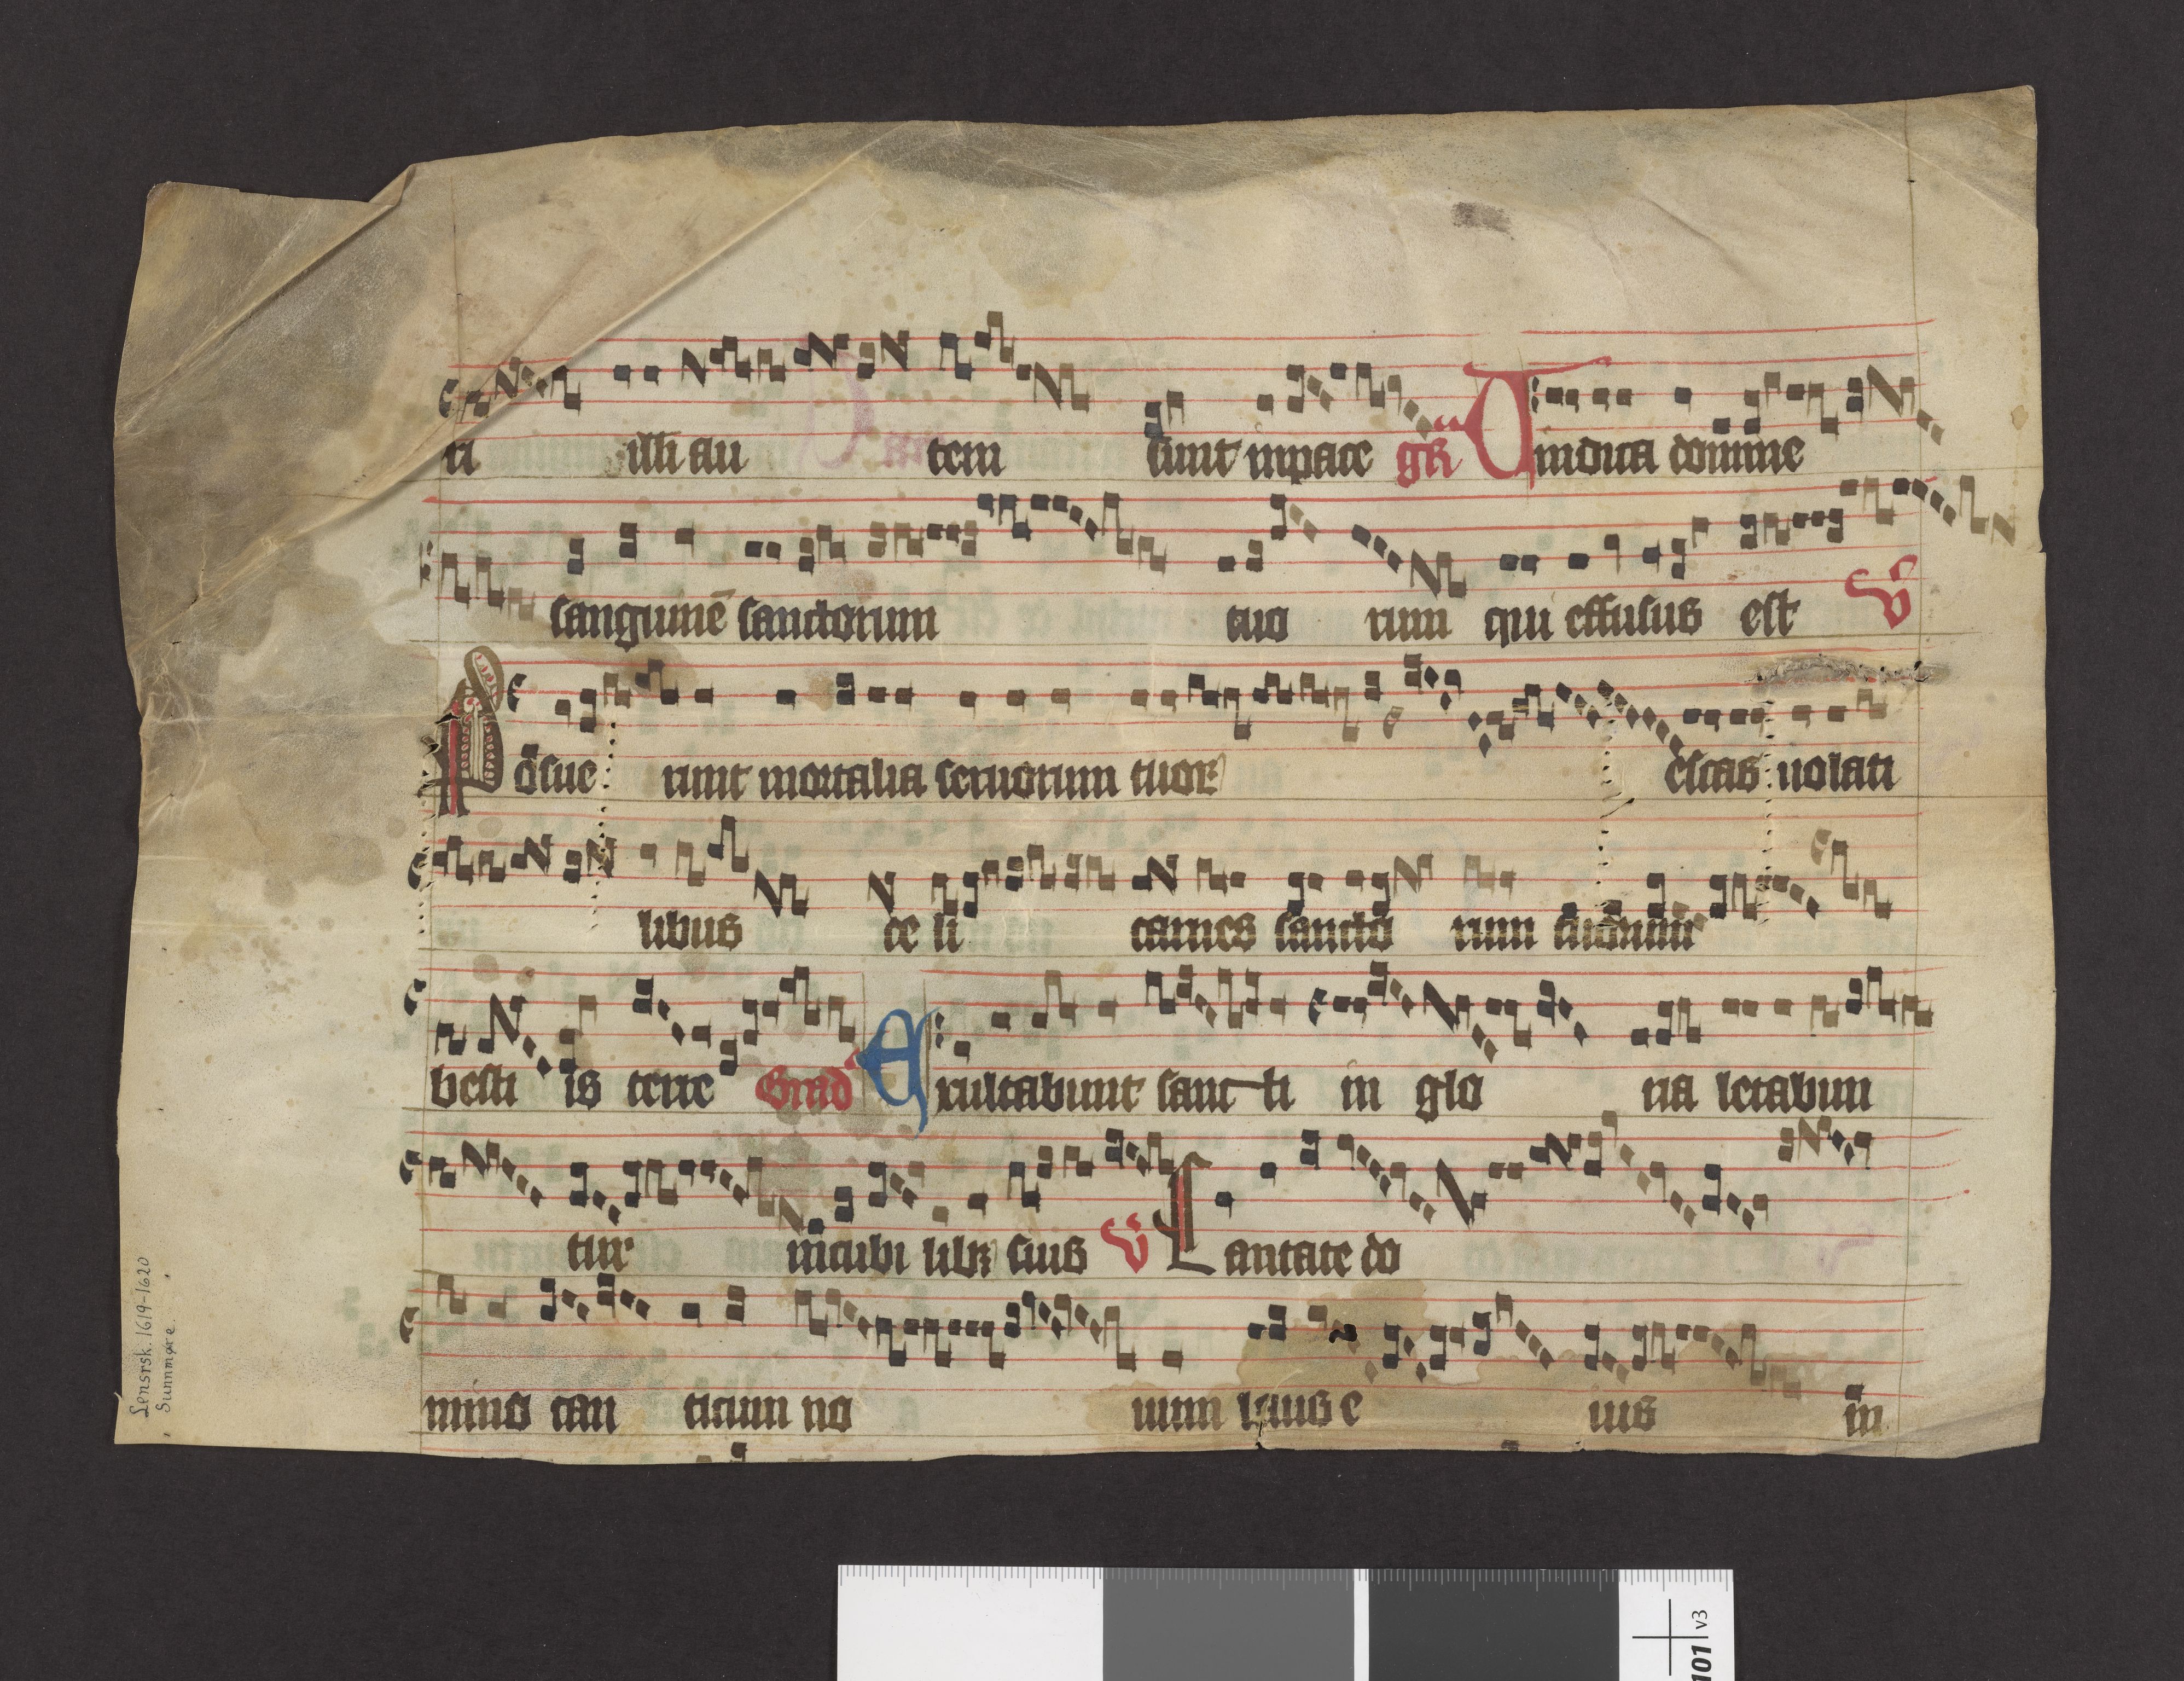 ti illi au tem sunt in pace gR Uindica domine
sanguinē sanctorum tuo rum qui effusus est V
Posue runt mortalia seruorum tuoꝝ escas uolati
libus ce li carnes sancto rum tuorum
besti is terre Grad Exultabunt sanc ti in glo ria letabun
tur in cubi libꝫ suis V Cantate do
mino can ticum no uum laus e ius in
Lensrsk. 1619-1620
Sunnmøre.
101 v3